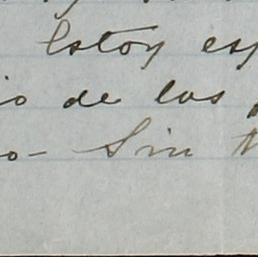 Estoy esp
io de las
o- Sin